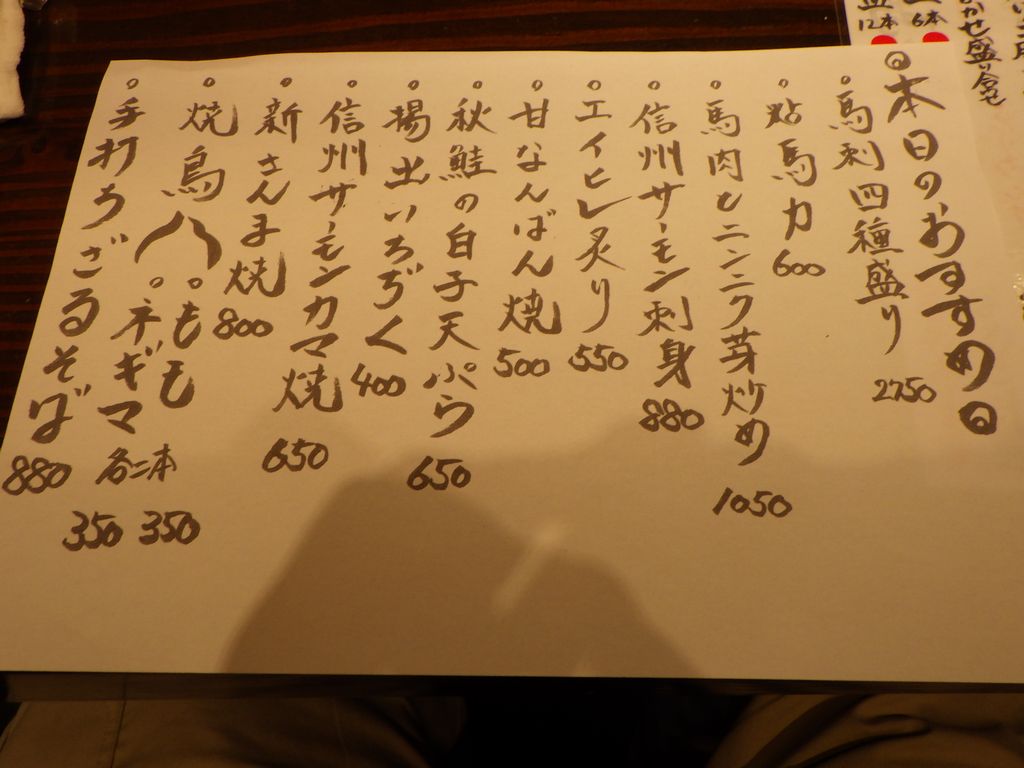 ◎本日のおすすめ◎
。馬刺四種盛り 2750
。點馬力 600
。馬肉とニンニク芽炒め 1050
。信州サーモン刺身 880
。エイヒレ炙り 550
。甘なんばん焼 500
。秋鮭の白子天ぷら 650
。揚出いちぢく 400
。信州サーモンカマ焼 650
。新さんま焼 800
。焼鳥八。もも 350
。ネギマ 各二本 350
。手打ちざるそば 880
6本
12本
かせ盛り合せ